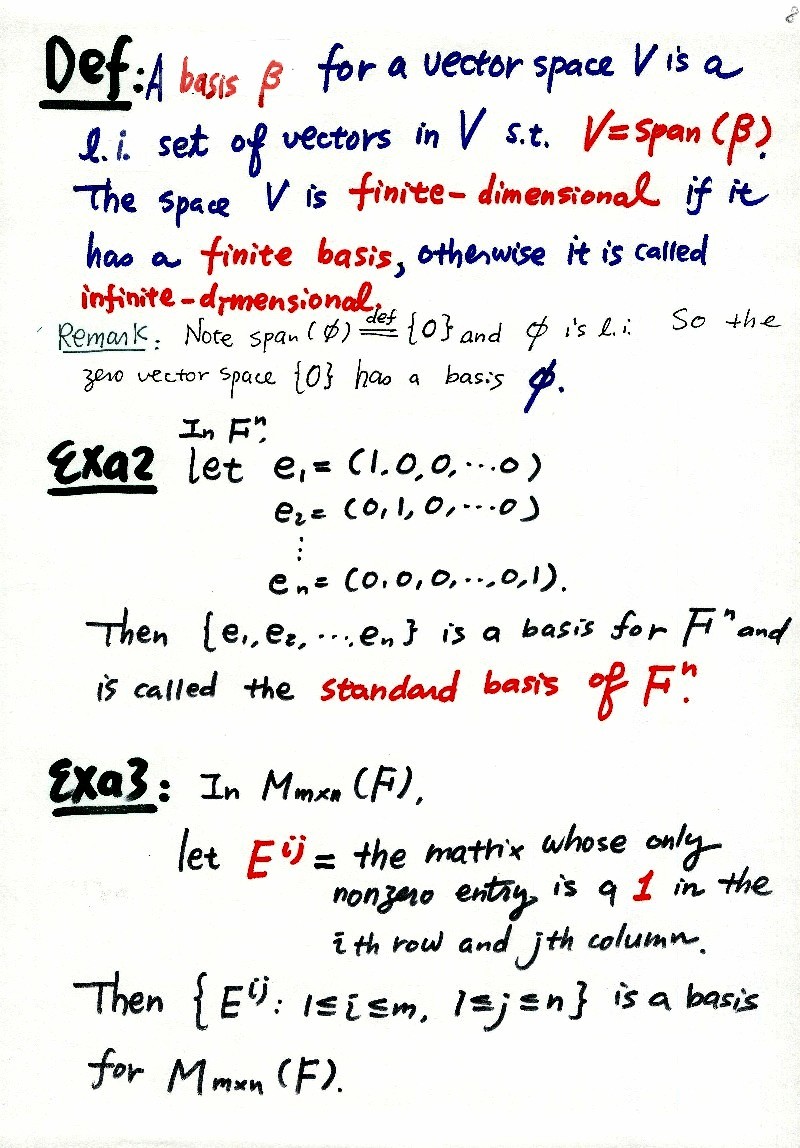 8
Def: A basis β for a vector space V is a
l.i. set of vectors in V s.t. V=span(β).
The space V is finite-dimensional if it
has a finite basis, otherwise it is called
infinite-dimensional.
Remark: Note span(∅) ≝ {0} and ∅ is l.i. So the
zero vector space {0} has a basis ∅.
In Fⁿ,
Exa2 let e₁ = (1,0,0,...0)
e₂ = (0,1,0,...0)
⋮
eₙ = (0,0,0,...,0,1).
Then {e₁,e₂,...eₙ} is a basis for Fⁿ and
is called the standard basis of Fⁿ.
Exa3: In Mmxn (F),
let Eⁱʲ = the matrix whose only
nonzero entry is a 1 in the
ith row and jth column.
Then {Eⁱʲ: 1≤i≤m, 1≤j≤n} is a basis
for Mmxn (F).